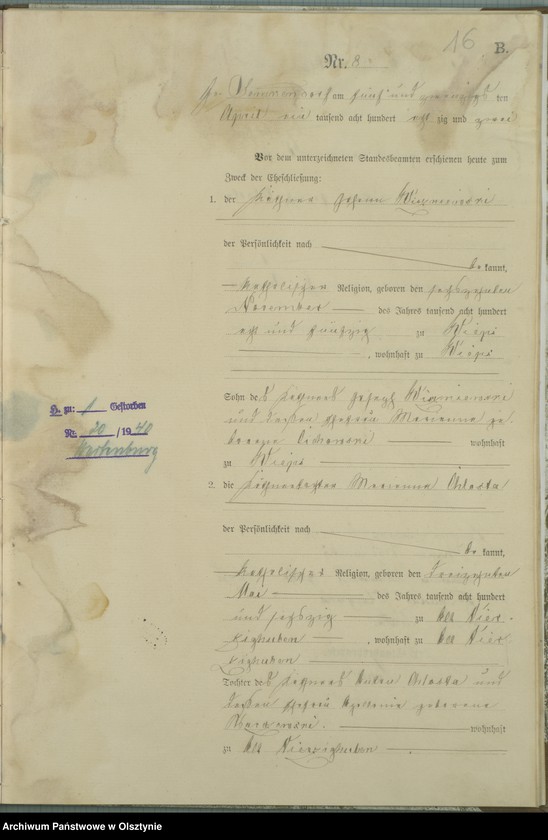 16
B.
Nr. 8
am fünf und zwanzigsten
April ein tausend acht hundert acht zig und zwei
Vor dem unterzeichneten Standesbeamten erschienen heute zum
Zweck der Eheschließung:
1. der Käthner Johann
der Persönlichkeit nach
be kannt,
katholischer Religion, geboren den sechszehnten
November des Jahrs tausend acht hundert
acht und fünfzig zu Wieps
, wohnhaft zu Wieps
Sohn des Käthners Joseph
und dessen Ehefrau Marianna ge
borene wohnhaft
zu Wieps
2. die Käthnertochter Marianna Chlosta
der Persönlichkeit nach
be kannt,
katholischer Religion, geboren den dreizehnten
Mai des Jahrs tausend acht hundert
und sechszig zu Alt Vier-
zighuben , wohnhaft zu Alt Vier
zighuben
Tochter des Käthners Anton Chlosta und
dessen Ehefrau geborene
wohnhaft
zu Alt Vierzighuben
H. zu: 1 Gestorben
Nr. 30 / 1940
Wartenburg
Archiwum Państwowe w Olsztynie